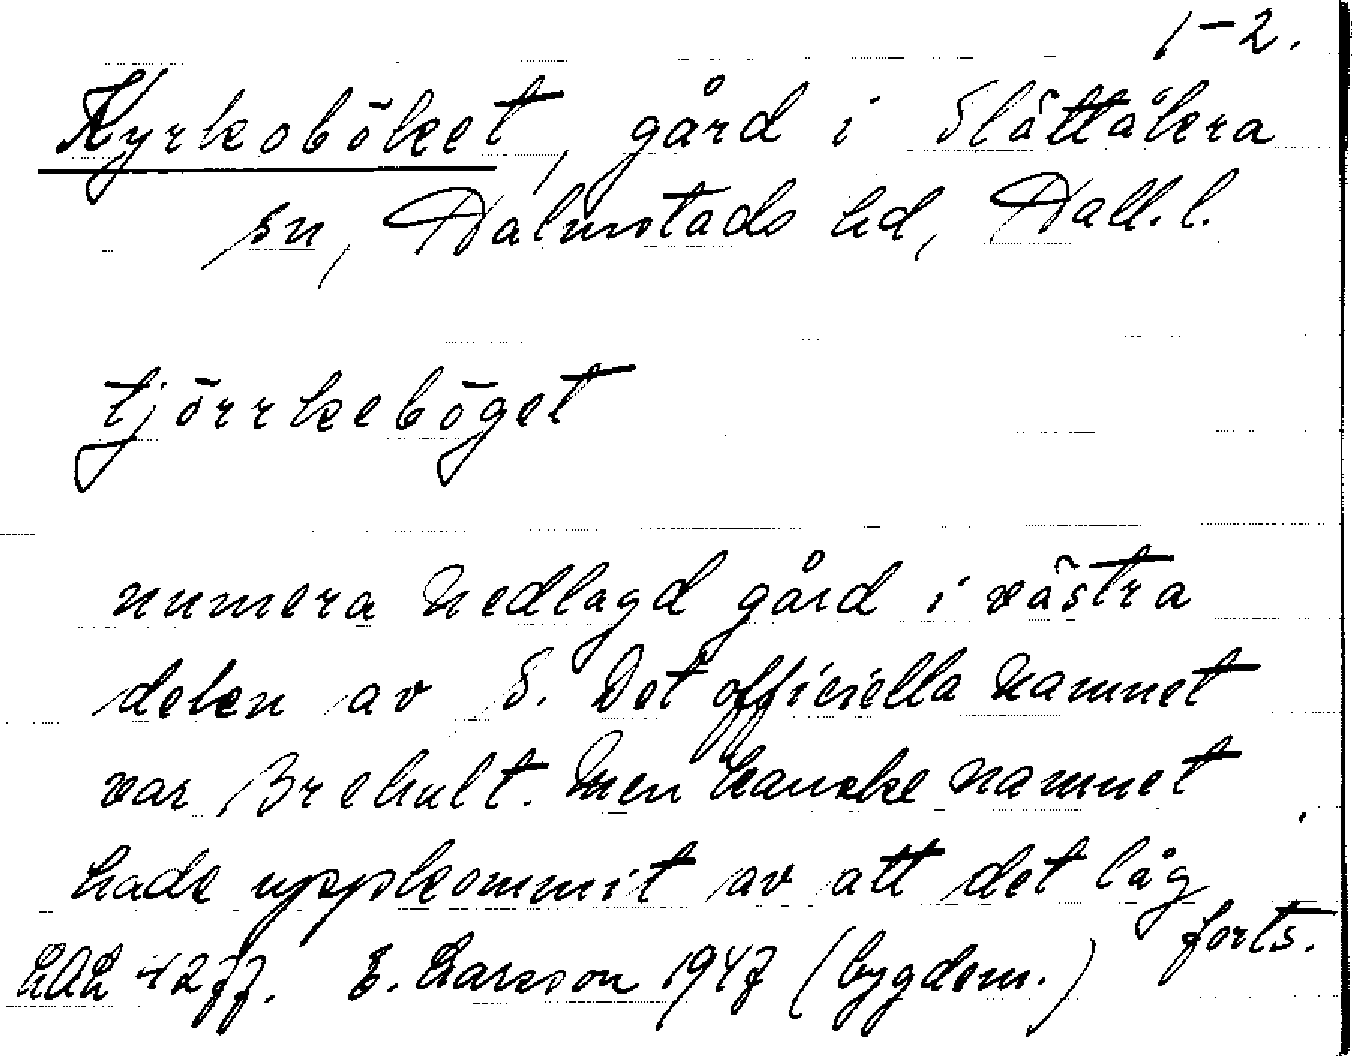 1-2.
Kyrkoböket, gård i Slättåkra
sn, Halmstads hd, Hall.l.
tjörrkeböget
numera nedlagd gård i västra
delen av S. Det officiella namnet
var Brehult. Men kanske namnet
hade uppkommit av att det låg
forts.
LAL 4277. E. Larsson 1947 (bygdem.)